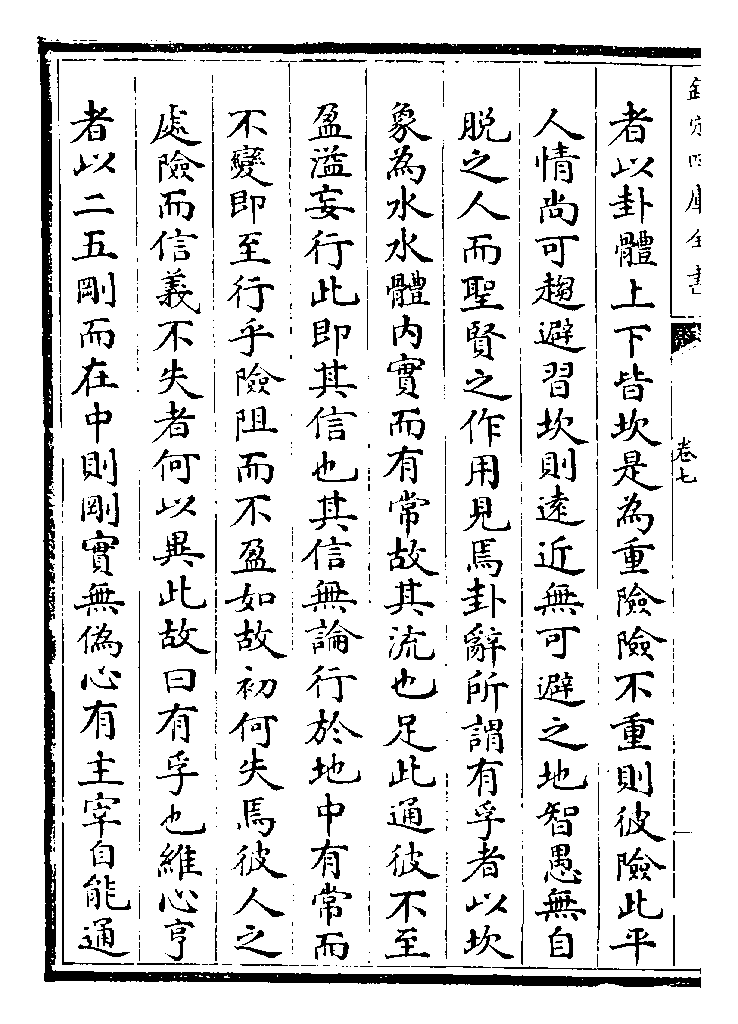 欽定四庫全書
卷七
者以卦體上下皆坎是為重險險不重則彼險此平
人情尚可趨避習坎則遠近無可避之地智愚無自
脱之人而聖賢之作用見焉卦辭所謂有孚者以坎
象為水水體内實而有常故其流也足此通彼不至
盈溢妄行此即其信也其信無論行於地中有常而
不變即至行乎險阻而不盈如故初何失焉彼人之
處險而信義不失者何以異此故曰有孚也維心亨
者以二五剛而在中則剛實無偽心有主宰自能通